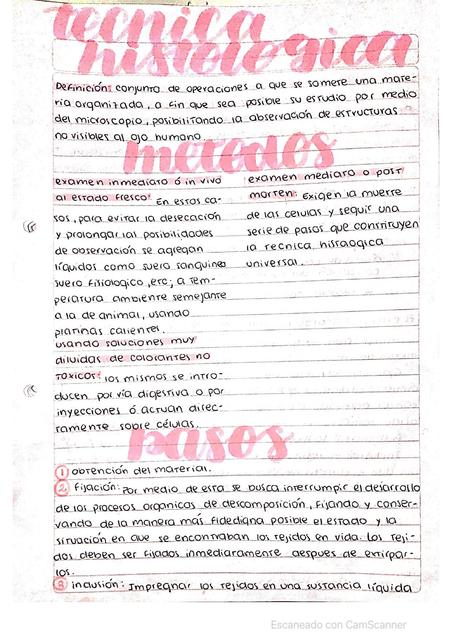 tecnica
histologica
Definición: conjunto de operaciones a que se somete una mate-
ria organizada, a fin que sea posible su estudio por medio
del microscopio, posibilitando la observación de estructuras
no visibles al ojo humano.
metodos
examen inmediato ó in vivo
al estado fresco: En estos ca-
sos, para evitar la desecación
y prolongar las posibilidades
de observación se agregan
líquidos como suero sanguineo
suero fisiologico, etc; a tem-
peratura ambiente semejante
a la de animal, usando
platinas calientes.
usando soluciones muy
diluidas de colorantes no
toxicos: los mismos se intro-
ducen por vía digestiva o por
inyecciones ó actúan direc-
tamente sobre células.
examen mediato o post
morten: Exigen la muerte
de las celulas y seguir una
serie de pasos que constituyen
la tecnica histologica
universal.
pasos
1 obtención del material.
2 Fijación: Por medio de esta se busca interrumpir el desarrollo
de los procesos organicos de descomposición, fijando y conser-
vando de la manera más fidedigna posible el estado y la
situación en que se encontraban los tejidos en vida. Los teji-
dos deben ser fijados inmediatamente despues de extirpar-
los.
3 inclusión: Impregnar los tejidos en una sustancia líquida
Escaneado con CamScanner